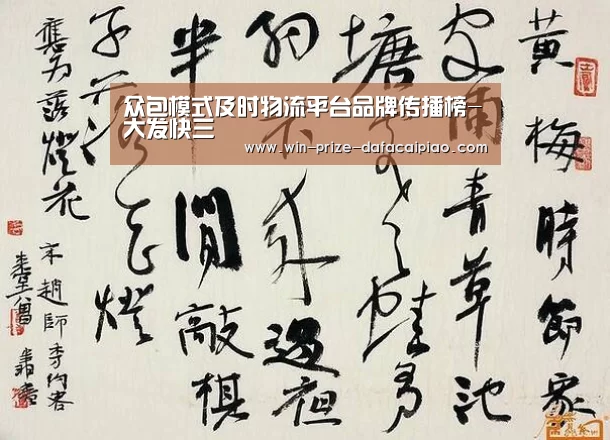 众包模式及时物流平台品牌传播榜-
大发快三
www.win-prize-dafacaipiao.com
黄梅時節家
家雨青草池
塘處々蛙有
約不来過夜
半閒敲棋
子燈
落燈花
宋趙師秀約客